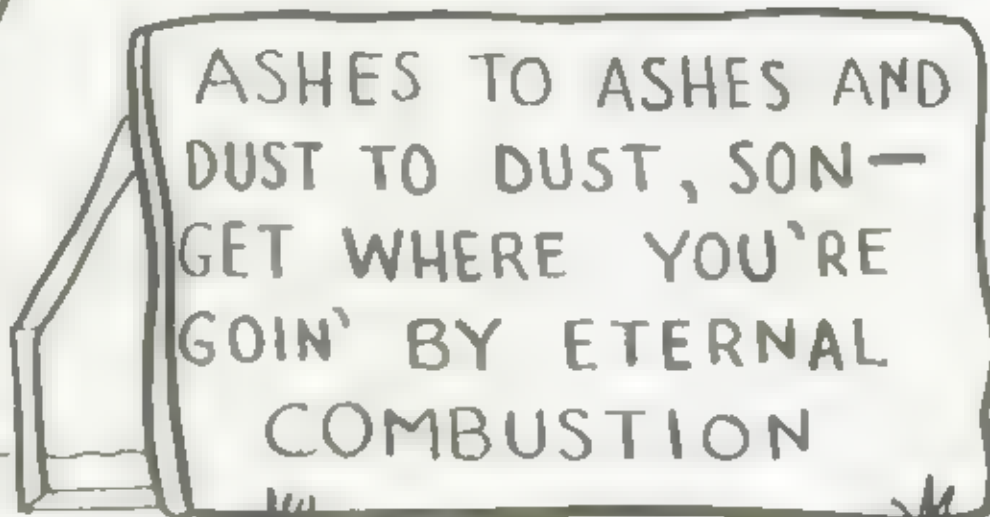 ASHES TO ASHES AND
DUST TO DUST, SON—
GET WHERE YOU'RE
GOIN' BY ETERNAL
COMBUSTION